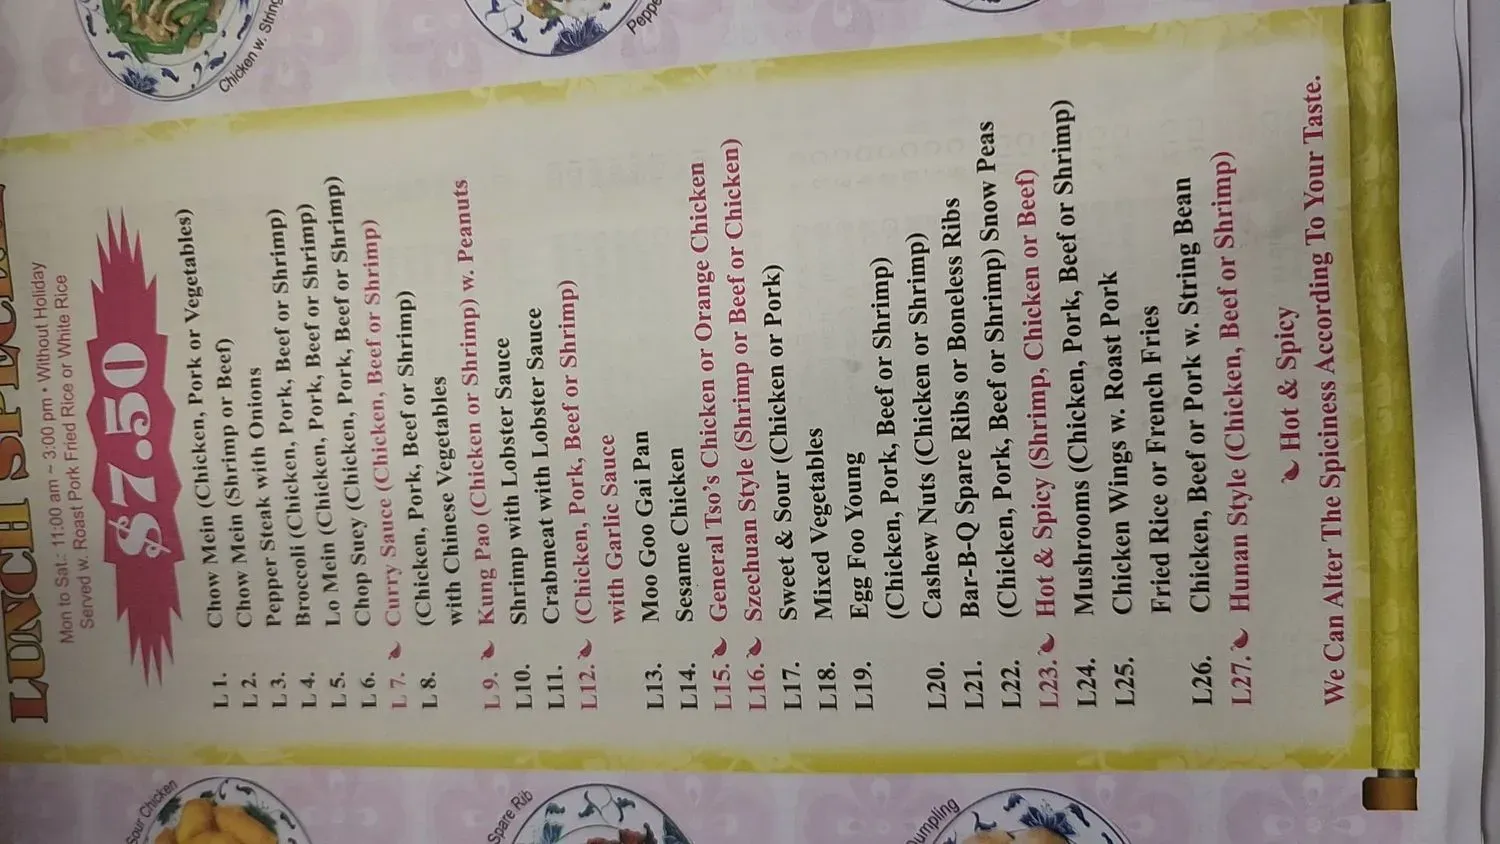 LUNCH SPECIAL
Mon to Sat.: 11:00 am ~ 3:00 pm • Without Holiday
Served w. Roast Pork Fried Rice or White Rice
$7.50
L 1. Chow Mein (Chicken, Pork or Vegetables)
L 2. Chow Mein (Shrimp or Beef)
L 3. Pepper Steak with Onions
L 4. Broccoli (Chicken, Pork, Beef or Shrimp)
L 5. Lo Mein (Chicken, Pork, Beef or Shrimp)
L 6. Chop Suey (Chicken, Pork, Beef or Shrimp)
L 7. Curry Sauce (Chicken, Beef or Shrimp)
L 8. (Chicken, Pork, Beef or Shrimp)
with Chinese Vegetables
L 9. Kung Pao (Chicken or Shrimp) w. Peanuts
L10. Shrimp with Lobster Sauce
L11. Crabmeat with Lobster Sauce
L12. (Chicken, Pork, Beef or Shrimp)
with Garlic Sauce
L13. Moo Goo Gai Pan
L14. Sesame Chicken
L15. General Tso's Chicken or Orange Chicken
L16. Szechuan Style (Shrimp or Beef or Chicken)
L17. Sweet & Sour (Chicken or Pork)
L18. Mixed Vegetables
L19. Egg Foo Young
(Chicken, Pork, Beef or Shrimp)
L20. Cashew Nuts (Chicken or Shrimp)
L21. Bar-B-Q Spare Ribs or Boneless Ribs
L22. (Chicken, Pork, Beef or Shrimp) Snow Peas
L23. Hot & Spicy (Shrimp, Chicken or Beef)
L24. Mushrooms (Chicken, Pork, Beef or Shrimp)
L25. Chicken Wings w. Roast Pork
Fried Rice or French Fries
L26. Chicken, Beef or Pork w. String Bean
L27. Hunan Style (Chicken, Beef or Shrimp)
Hot & Spicy
We Can Alter The Spiciness According To Your Taste.
Chicken w. String
Peppe
Sour Chicken
Spare Rib
Dumpling